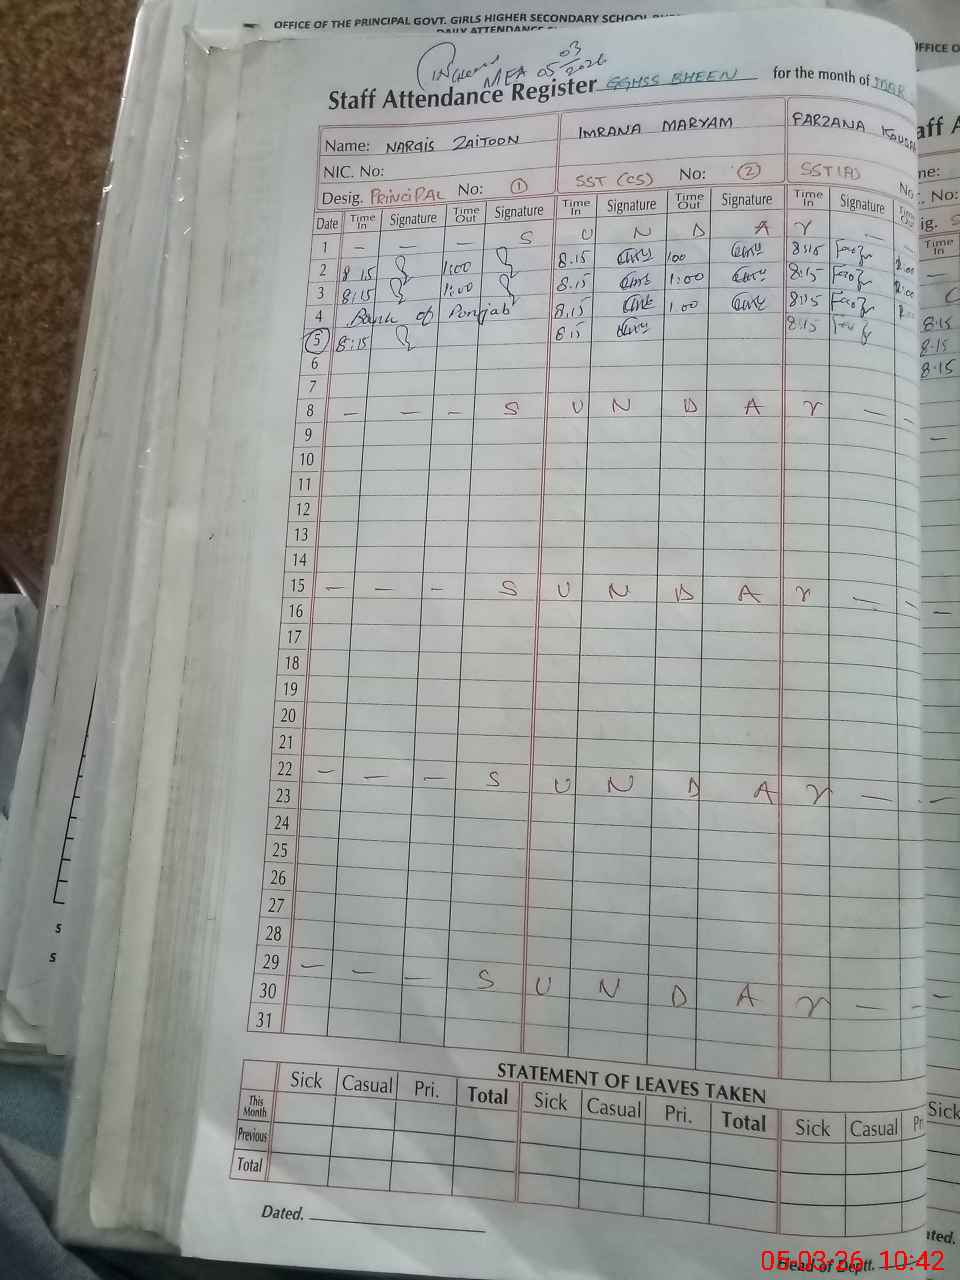 OFFICE OF THE PRINCIPAL GOVT. GIRLS HIGHER SECONDARY SCHOOL
DAILY ATTENDANCE
MEA 05/03/2026
Staff Attendance Register GGHSS BHEEN for the month of MAR
Name: NARGIS ZAITOON IMRANA MARYAM FARZANA
NIC. No:
Desig. PRINCIPAL No: 1 SST (CS) No: 2 SST (A) No
Date Time In Signature Time Out Signature Time In Signature Time Out Signature Time In Signature
1 — — — S U N D A Y —
2 8:15 1:00 8.15 1:00 8:15
3 8:15 1:00 8.15 1:00 8:15
4 Bank of Punjab 8.15 1.00 8:15
5 8:15 8.15 8:15
6
7
8 — — — S U N D A Y — —
9
10
11
12
13
14
15 — — — S U N D A Y — —
16
17
18
19
20
21
22 — — — S U N D A Y — —
23
24
25
26
27
28
29 — — — S U N D A Y — —
30
31
STATEMENT OF LEAVES TAKEN
Sick Casual Pri. Total Sick Casual Pri. Total Sick Casual
This Month
Previous
Total
Dated.
Head of Deptt.
OFFICE O
aff A
me:
No:
Time In
8.15
8.15
8.15
Sick
ated.
05.03.26 10:42